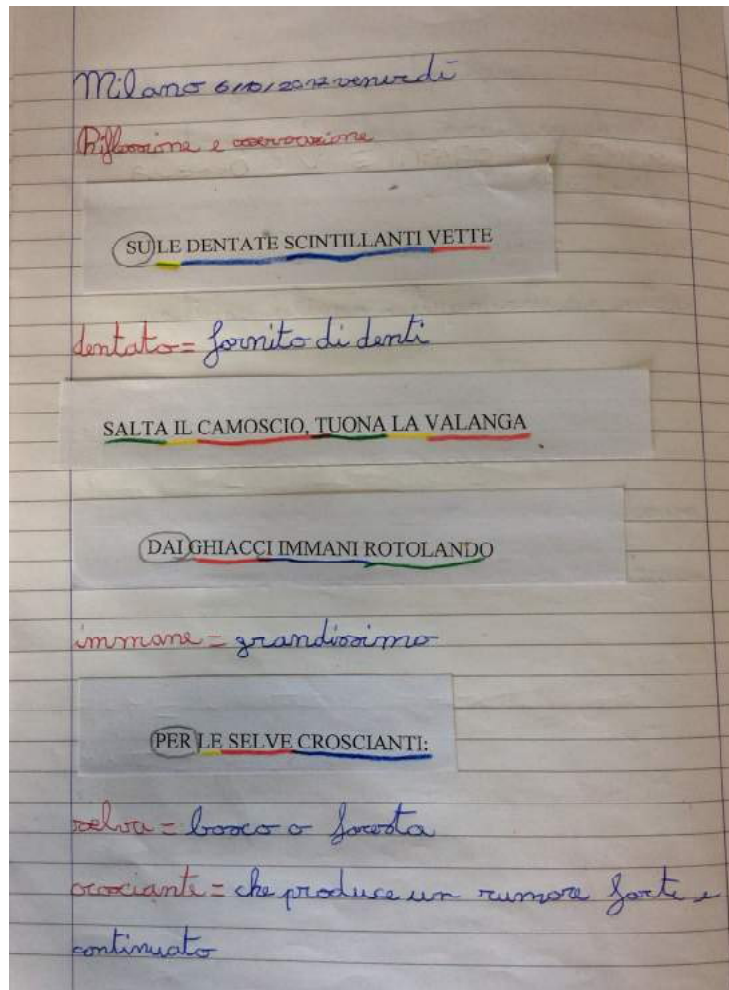 Milano 6/10/2017 venerdì
Riflessione e osservazione
SU LE DENTATE SCINTILLANTI VETTE
dentato = fornito di denti
SALTA IL CAMOSCIO, TUONA LA VALANGA
DAI GHIACCI IMMANI ROTOLANDO
immane = grandissimo
PER LE SELVE CROSCIANTI:
selva = bosco o foresta
crosciante = che produce un rumore forte e
continuato